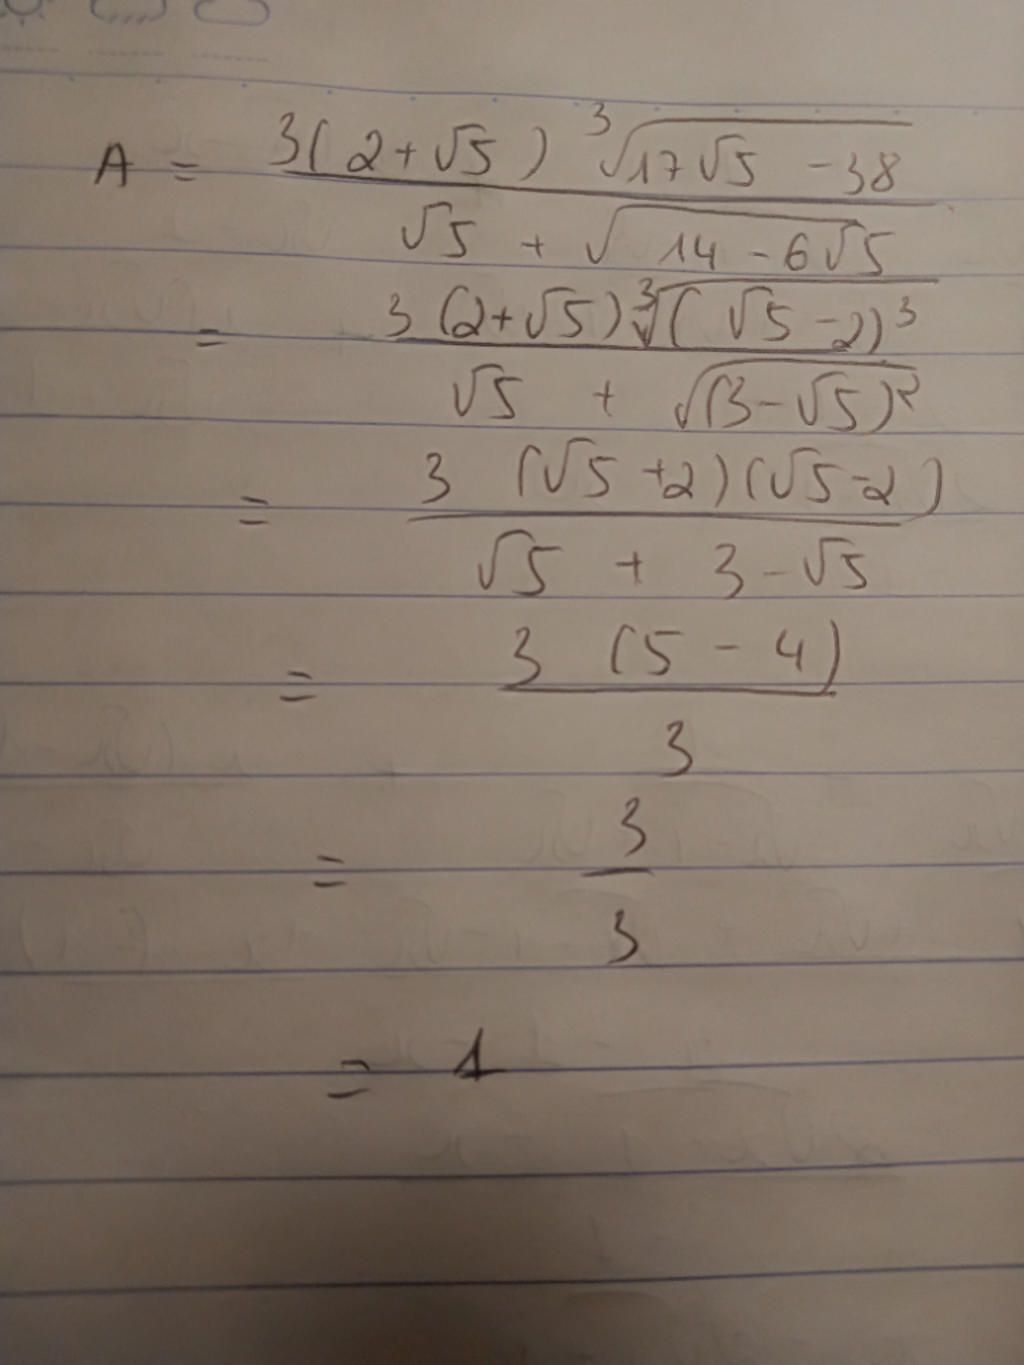 A = 3(2+√5) ∛(17√5 - 38) / (√5 + √(14 - 6√5))
= 3(2+√5)∛((√5-2)³) / (√5 + √((3-√5)²))
= 3 (√5+2)(√5-2) / (√5 + 3-√5)
= 3 (5 - 4) / 3
= 3 / 3
= 1